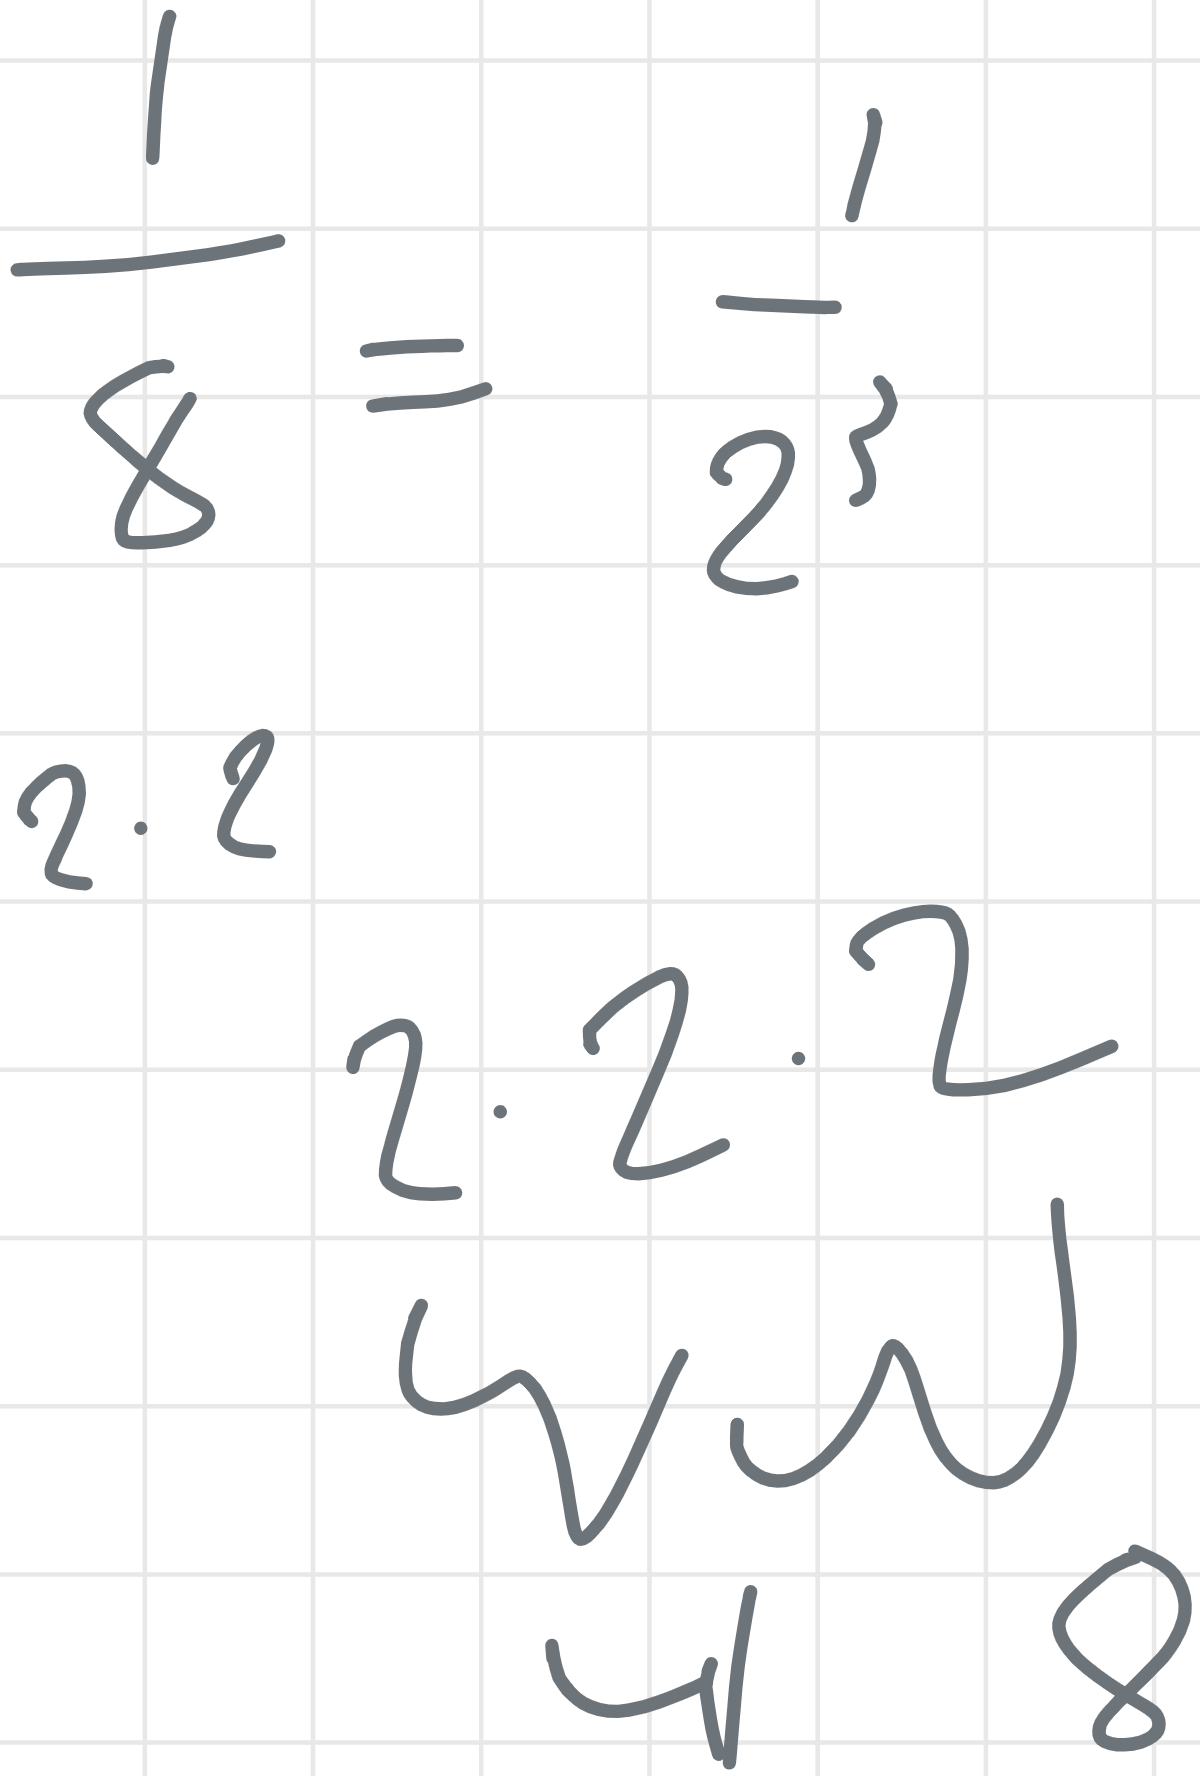 1/8 = 1/2³
2 · 2
2 · 2 · 2
4 8